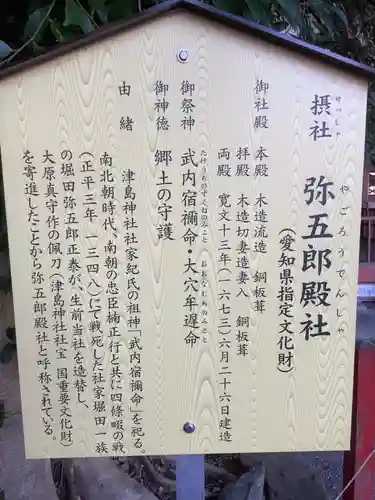 せっしゃ
摂社
やごろうでんしゃ
弥五郎殿社
(愛知県指定文化財)
御社殿 本殿 木造流造 銅板葺
拝殿 木造切妻造妻入 銅板葺
両殿 寛文十三年(一六七三)六月二十六日建造
たけうちのすくねのみこと おおなむちのみこと
御祭神 武内宿禰命・大穴牟遅命
御神徳 郷土の守護
由緒 津島神社社家紀氏の祖神「武内宿禰命」を祀る。
南北朝時代、南朝の忠臣楠正行と共に四條畷の戦
(正平三年 一三四八)にて戦死した社家堀田一族
の堀田弥五郎正泰が、生前当社を造替し、
大原真守作の佩刀(津島神社社宝 国重要文化財)
を寄進したことから弥五郎殿社と呼称されている。